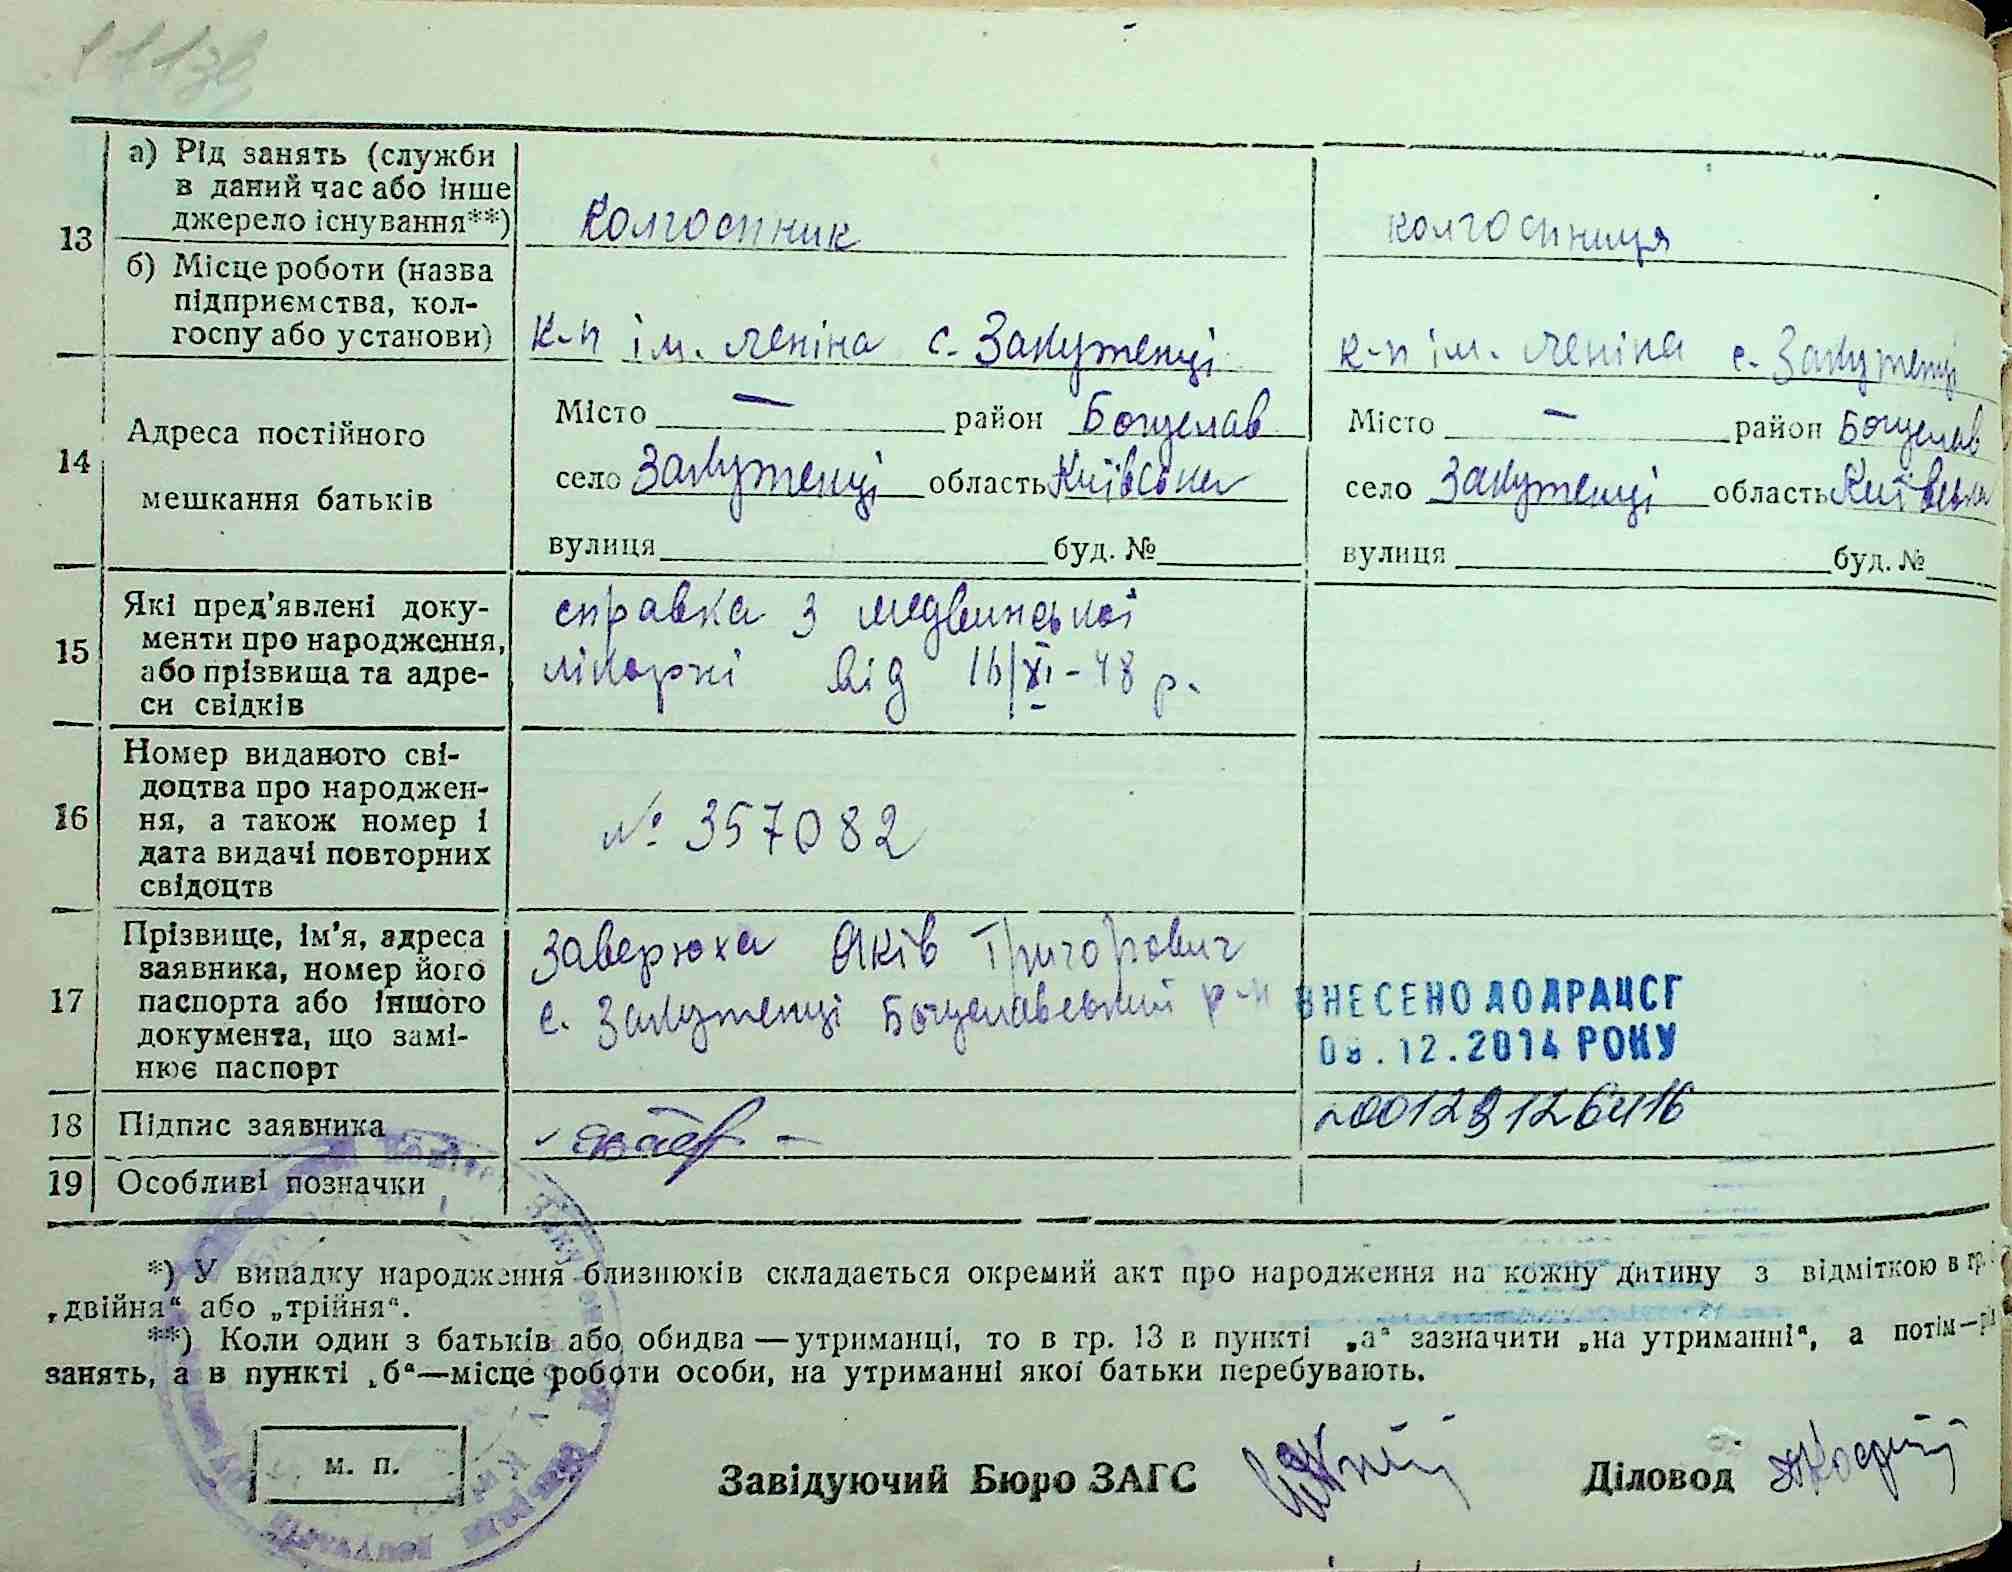 13
а) Рід занять (служби
в даний час або інше
джерело існування**)
колгоспник
колгоспниця
б) Місце роботи (назва
підприємства, кол-
госпу або установи)
к-п ім. Леніна с. Закутенці
к-п ім. Леніна с. Закутенці
14
Адреса постійного
мешкання батьків
Місто — район Богуслав
село Закутенці область Київська
вулиця буд. №
Місто — район Богуслав
село Закутенці область Київська
вулиця буд. №
15
Які пред’явлені доку-
менти про народження,
або прізвища та адре-
си свідків
справка з медвинської
лікарні від 16/XI-48 р.
16
Номер виданого сві-
доцтва про народжен-
ня, а також номер і
дата видачі повторних
свідоцтв
№ 357082
17
Прізвище, ім’я, адреса
заявника, номер його
паспорта або іншого
документа, що замі-
нює паспорт
Заверюха Яків Григорович
с. Закутенці Богуславський р-н
ВНЕСЕНО ДО ДРАЦСГ
08.12.2014 РОКУ
18
Підпис заявника
19
Особливі позначки
*) У випадку народження близнюків складається окремий акт про народження на кожну дитину з відміткою в гр.
„двійня“ або „трійня“.
**) Коли один з батьків або обидва — утриманці, то в гр. 13 в пункті „а“ зазначити „на утриманні“, а потім—
занять, а в пункті „б“—місце роботи особи, на утриманні якої батьки перебувають.
м. п.
Завідуючий Бюро ЗАГС
Діловод